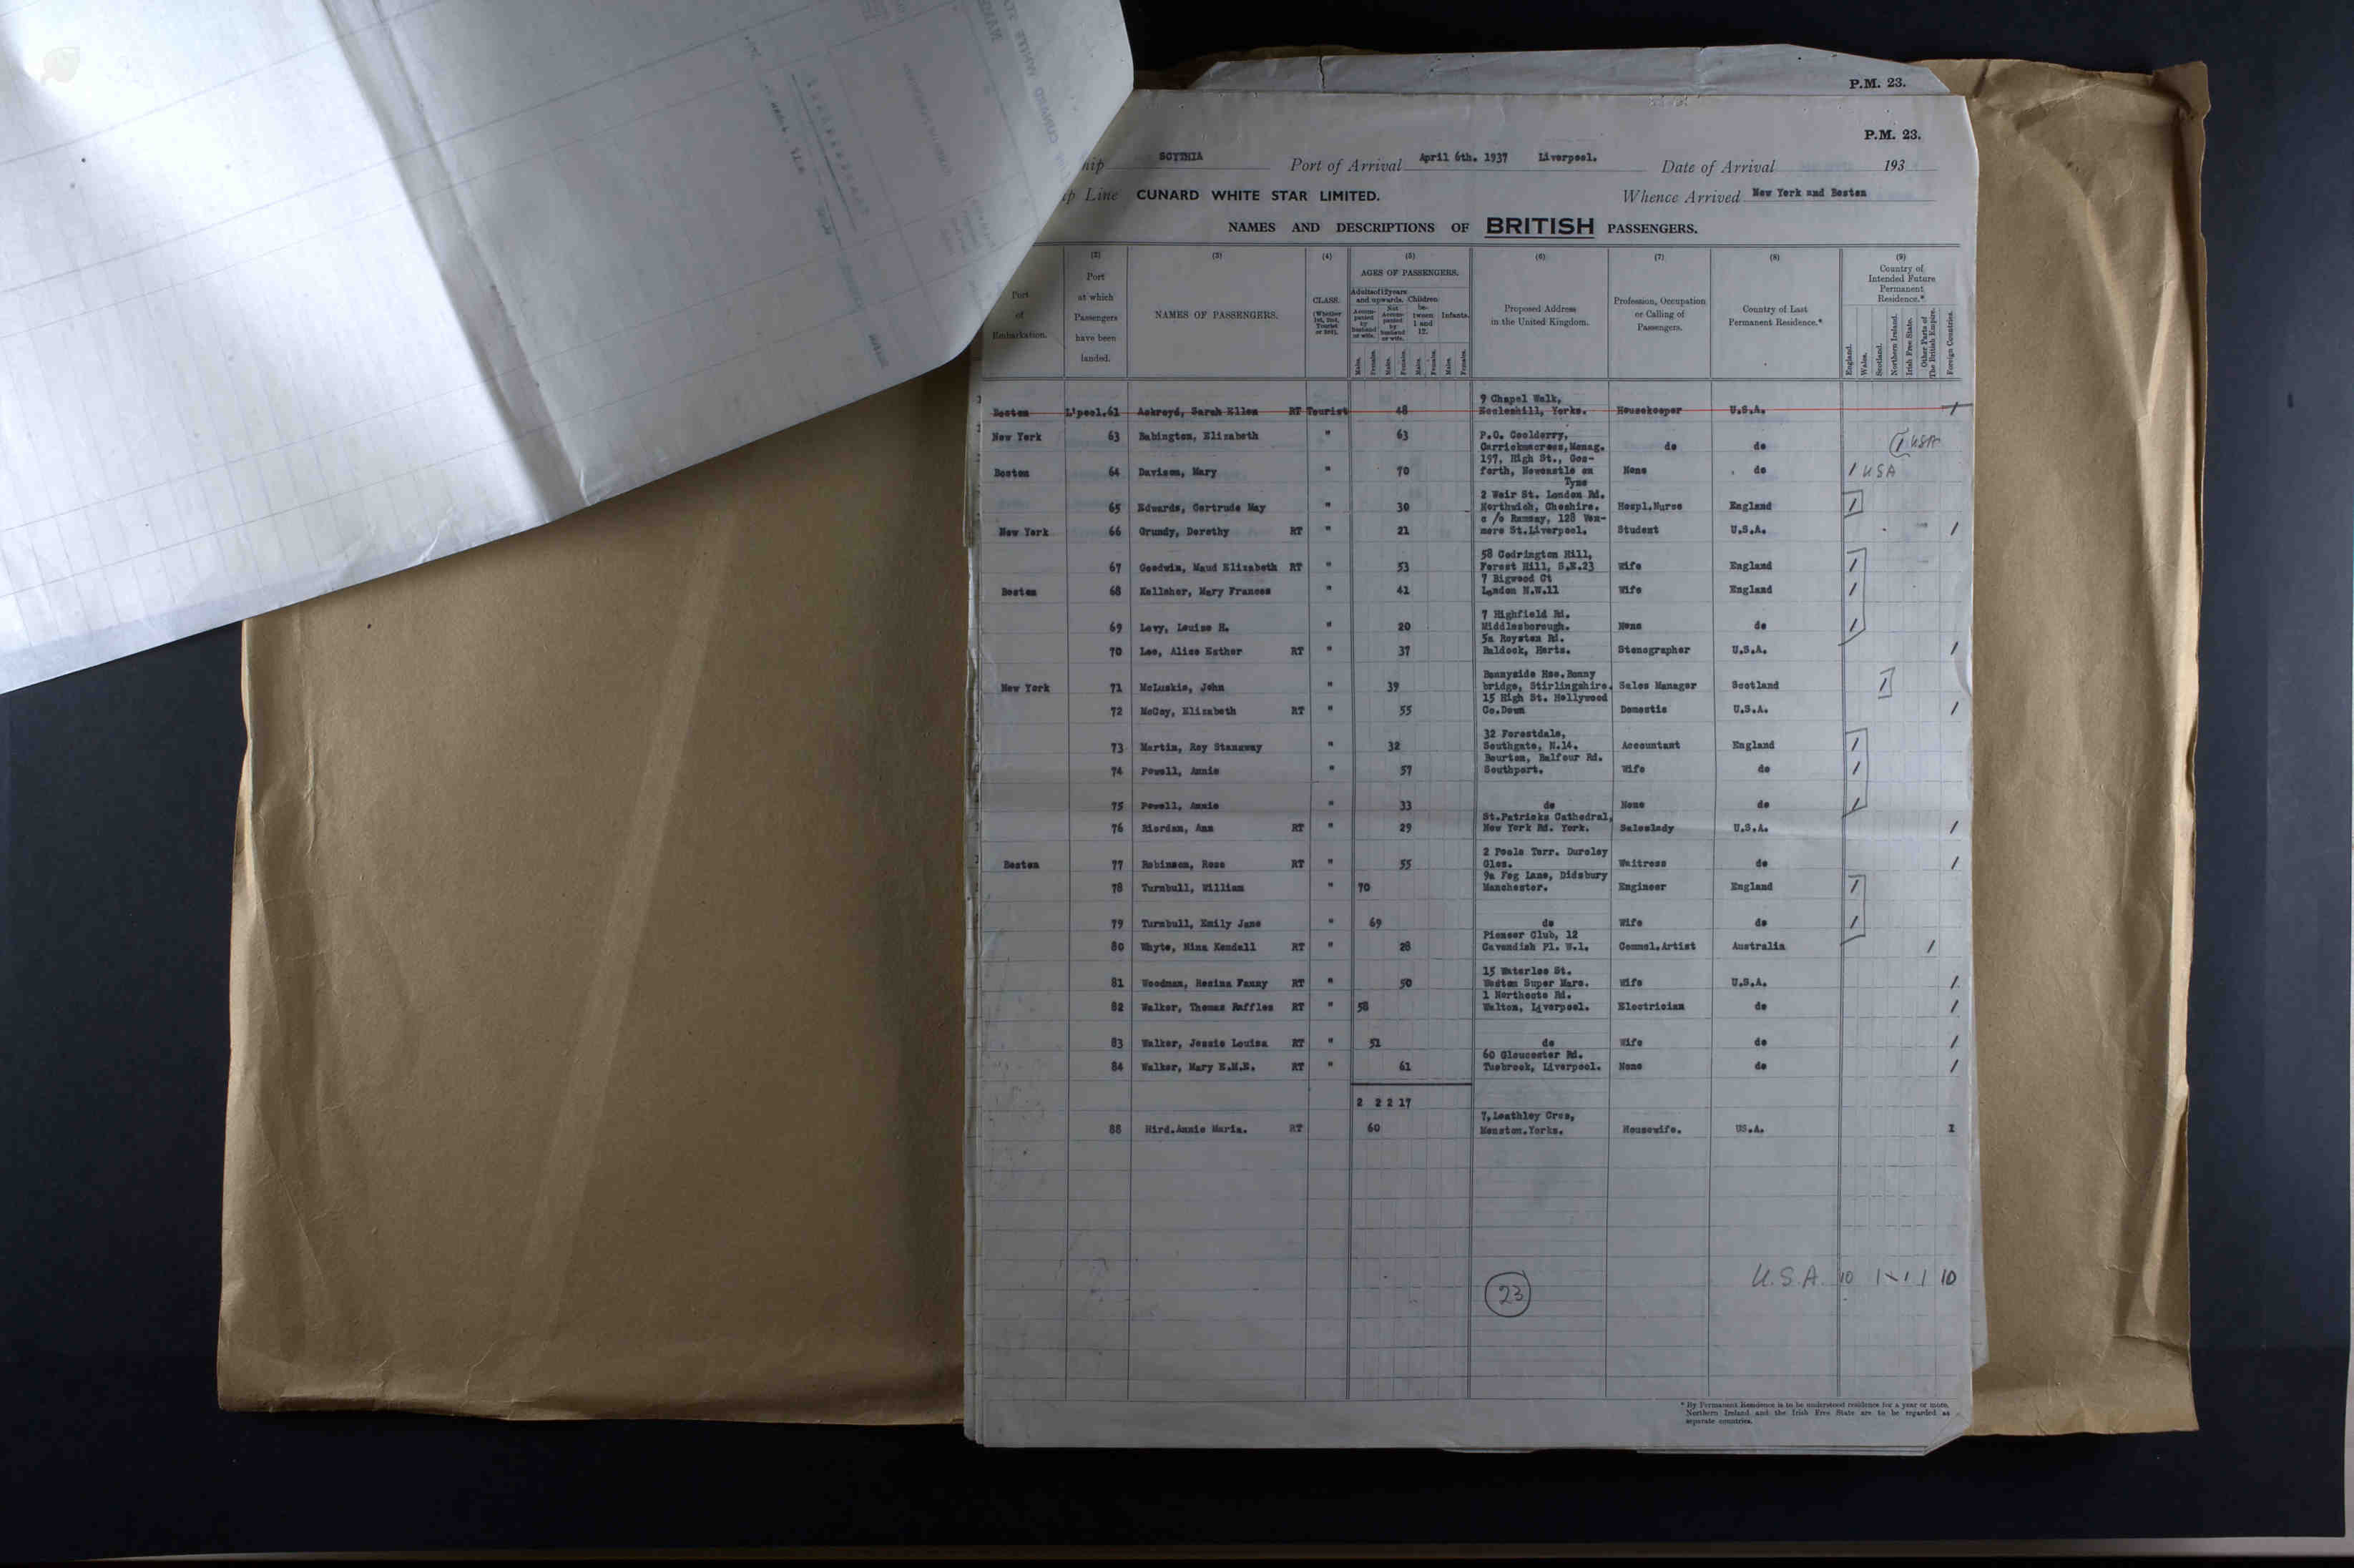 P.M. 23.
P.M. 23.
SCYTHIA Port of Arrival April 6th. 1937 Liverpool. Date of Arrival 193
Line CUNARD WHITE STAR LIMITED. Whence Arrived New York and Boston
NAMES AND DESCRIPTIONS OF BRITISH PASSENGERS.
(2) (3) (4) (5) (6) (7) (8) (9)
Port of Embarkation.
Port at which Passengers have been landed.
NAMES OF PASSENGERS.
CLASS. (Whether 1st, 2nd, Tourist or 3rd).
AGES OF PASSENGERS.
Adults of 12 years and upwards.
Accompanied by husband or wife.
Not accompanied by husband or wife.
Children between 1 and 12.
Infants.
Males. Females. Males. Females. Males. Females. Males. Females.
Proposed Address in the United Kingdom.
Profession, Occupation or Calling of Passengers.
Country of Last Permanent Residence.*
Country of Intended Future Permanent Residence.*
England. Wales. Scotland. Northern Ireland. Irish Free State. Other Parts of The British Empire. Foreign Countries.
9 Chapel Walk,
Boston L'pool.61 Ackroyd, Sarah Ellen RT Tourist 48 Eccleshill, Yorks. Housekeeper U.S.A. /
New York 63 Babington, Elizabeth " 63 P.O. Coolderry,
Carrickmacross, Monag. do do 1 USA
197, High St., Gos-
Boston 64 Davison, Mary " 70 forth, Newcastle on None do / USA
Tyne
2 Weir St. London Rd.
65 Edwards, Gertrude May " 30 Northwich, Cheshire. Hospl.Nurse England /
c/o Ramsay, 128 Ven-
New York 66 Grundy, Dorothy RT " 21 more St.Liverpool. Student U.S.A. /
58 Codrington Hill,
67 Goodwin, Maud Elizabeth RT " 53 Forest Hill, S.E.23 Wife England /
7 Bigwood Ct
Boston 68 Kellaher, Mary Frances " 41 London N.W.11 Wife England /
7 Highfield Rd.
69 Levy, Louise H. " 20 Middlesborough. None do /
5a Royston Rd.
70 Lee, Alice Esther RT " 37 Baldock, Herts. Stenographer U.S.A. /
Bonnyside Hse. Bonny
New York 71 McLuskie, John " 39 bridge, Stirlingshire. Sales Manager Scotland /
15 High St. Hollywood
72 McCoy, Elizabeth RT " 55 Co.Down Domestic U.S.A. /
32 Forestdale,
73 Martin, Roy Stanaway " 32 Southgate, N.14. Accountant England /
Bourton, Balfour Rd.
74 Powell, Annie " 57 Southport. Wife do /
75 Powell, Annie " 33 do None do /
St.Patricks Cathedral,
76 Riordan, Ann RT " 29 New York Rd. York. Saleslady U.S.A. /
2 Poole Terr. Dursley
Boston 77 Robinson, Rose RT " 55 Glos. Waitress do /
9a Fog Lane, Didsbury
78 Turnbull, William " 70 Manchester. Engineer England /
79 Turnbull, Emily Jane " 69 do Wife do /
Pioneer Club, 12
80 Whyte, Nina Kendall RT " 28 Cavendish Pl. W.1. Comml.Artist Australia /
15 Waterloo St.
81 Woodman, Rosina Fanny RT " 50 Weston Super Mare. Wife U.S.A. /
1 Northcote Rd.
82 Walker, Thomas Raffles RT " 58 Walton, Liverpool. Electrician do /
83 Walker, Jessie Louisa RT " 51 do Wife do /
60 Gloucester Rd.
84 Walker, Mary E.M.E. RT " 61 Tuebrook, Liverpool. None do /
2 2 2 17
7, Leathley Cres,
88 Hird.Annie Maria. RT 60 Menston.Yorks. Housewife. US.A. 1
U.S.A. 10 1 1 1 10
23
* By Permanent Residence is to be understood residence for a year or more.
Northern Ireland and the Irish Free State are to be regarded as
separate countries.